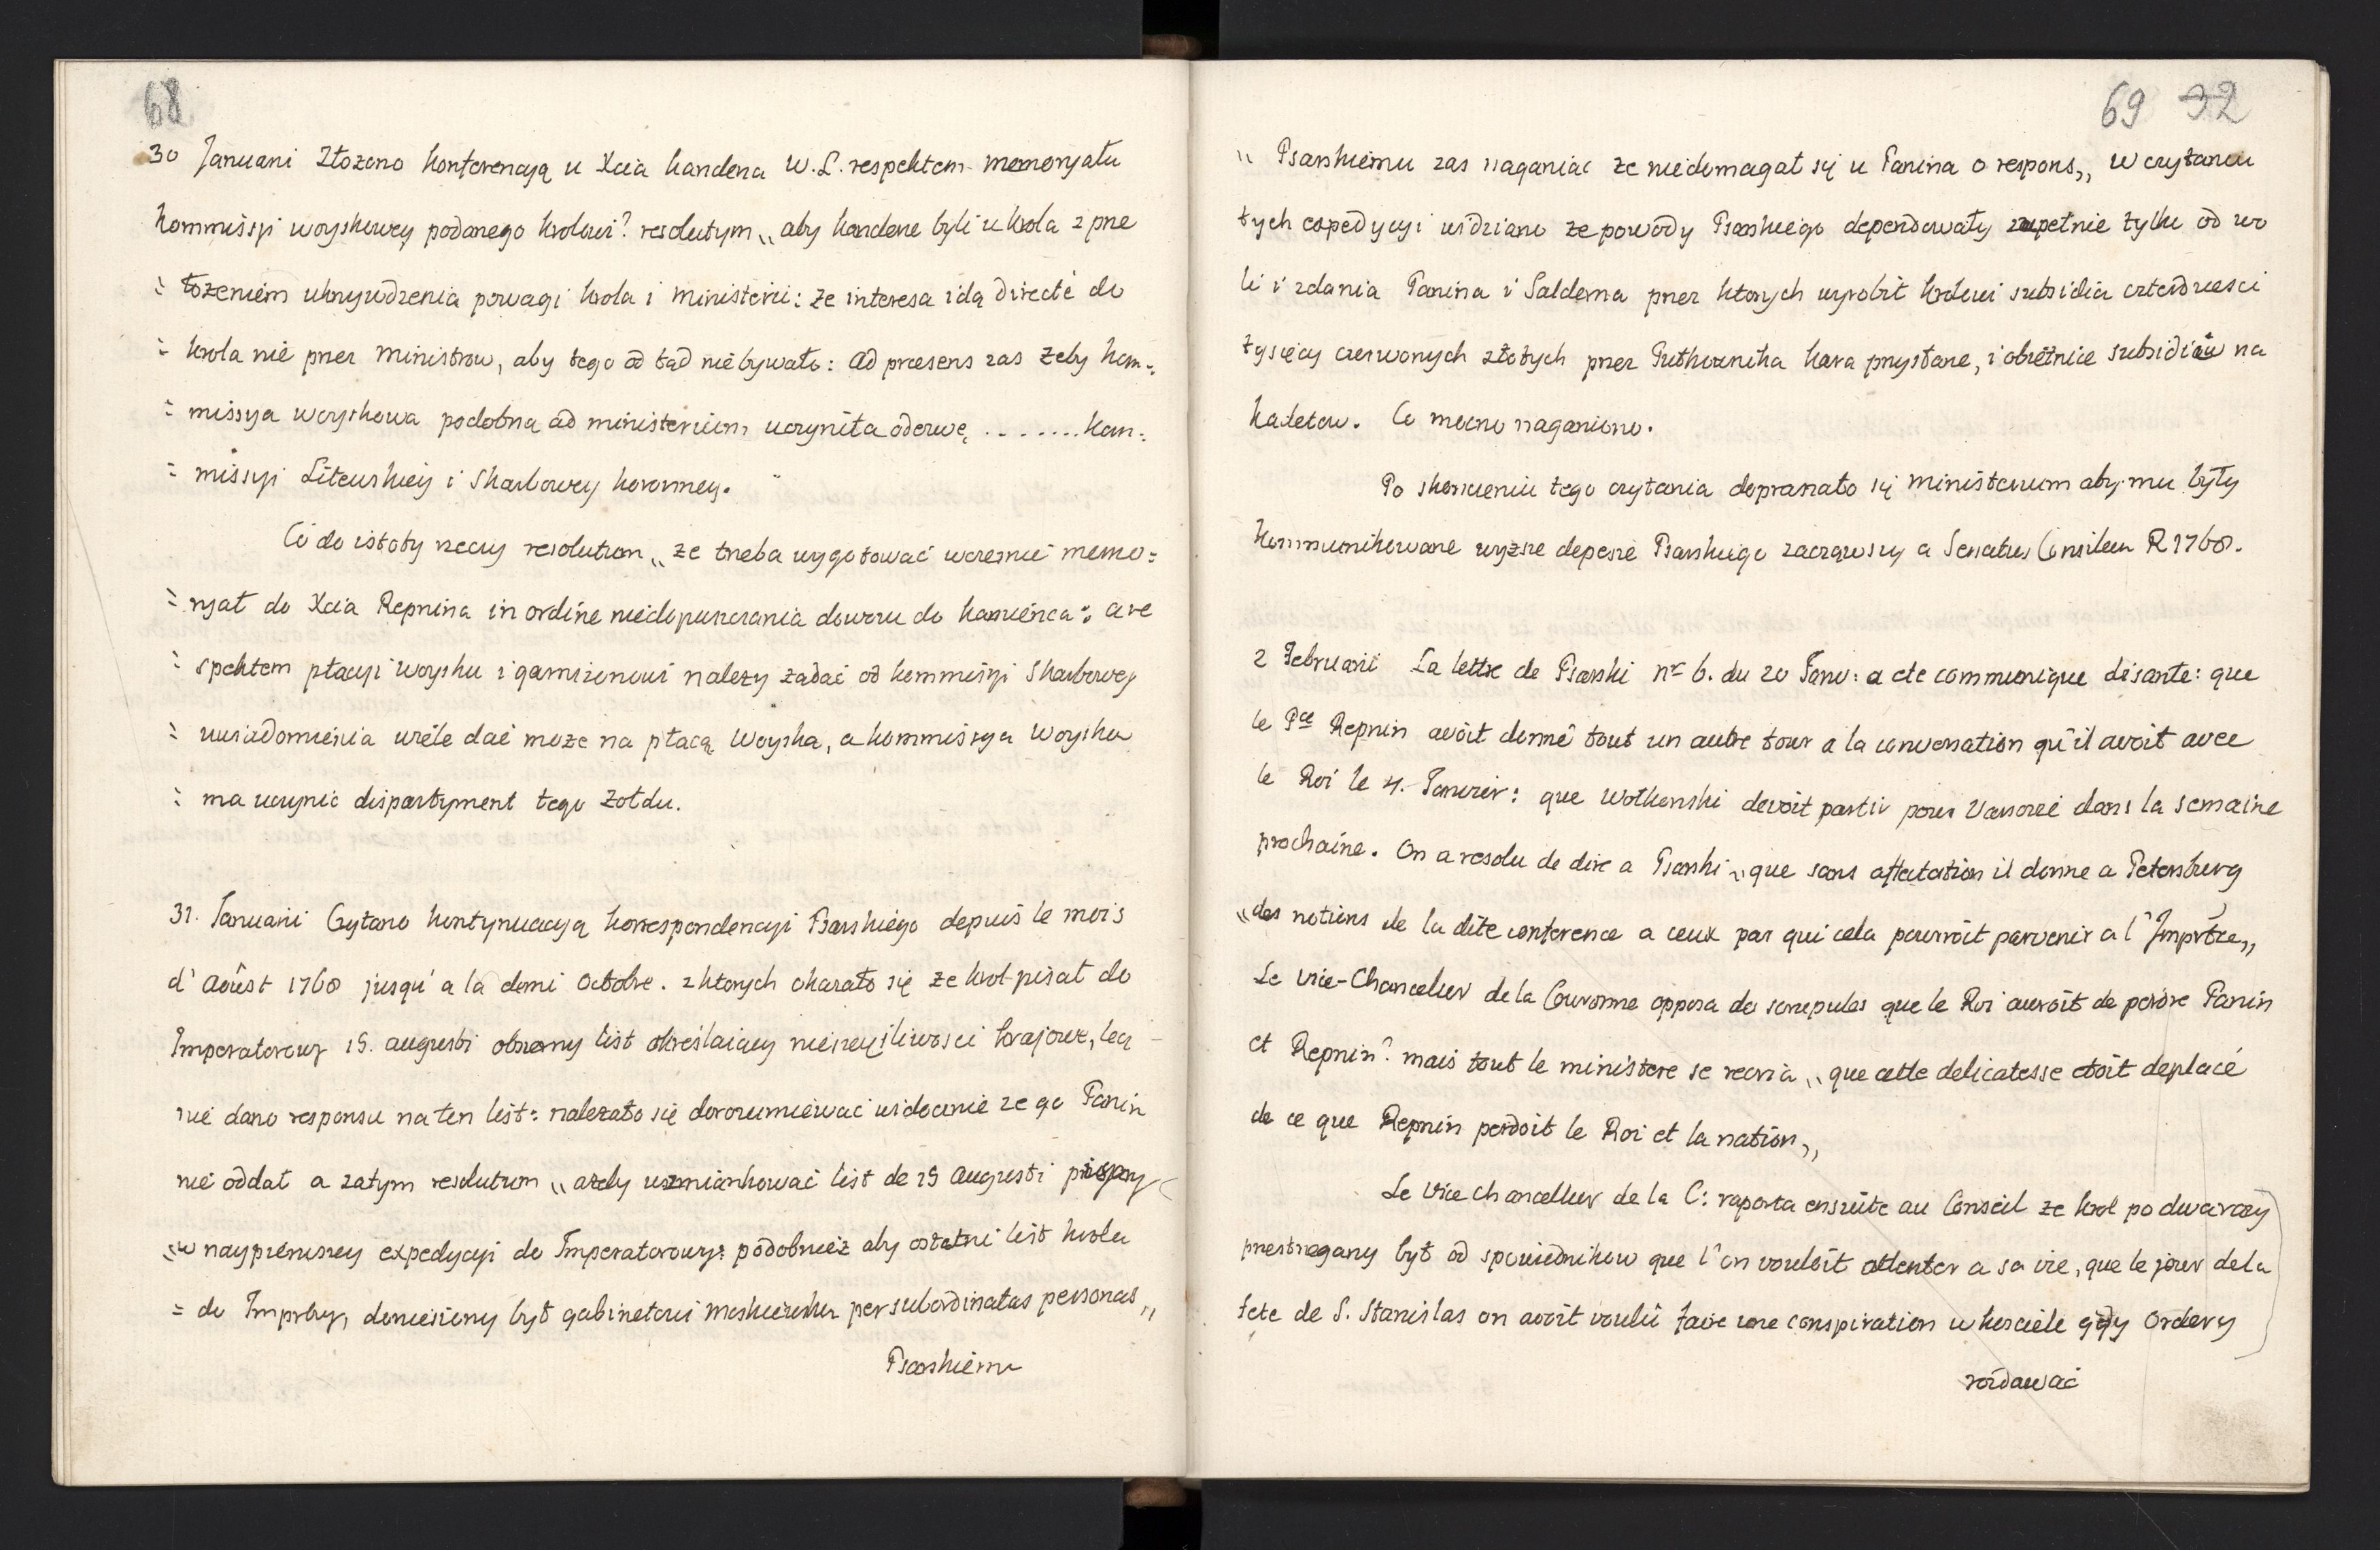 68
30 Januarii Złożono konferencyą u Xcia kanclerza W. L. respektem memoryału
kommissyi woyskowey podanego krolowi? resolutum „ aby kanclerze byli u krola z prze
= łożeniem ukrzywdzenia powagi krola i ministerii: że interesa idą directè do
= krola nie przez ministrow, aby tego od tąd nie bywało: ad praesens zas żeby kom=
= missya woyskowa podobną ad ministerium uczyniła odezwę ........ kom=
= missyi Litewskiey i Skarbowey koronney.
Co do istoty rzeczy resolutum „ że trzeba wygotować wczesnie memo=
= ryał do Xcia Repnina in ordine niedopuszczania dowozu do kamieńca: a re
= spektem płacyi woysku i garnizonowi należy żądać od kommissyi Skarbowey
= uwiadomienia wiele dać może na płacą woyska, a kommissya woyska
= ma uczynić dispartyment tego żołdu.
31. Januarii Czytano kontynuacyą korrespondencyi Psarskiego depuis le mois
d' Aoûst 1768 jusqu' a la demi Octobre. z ktorych okazało się że krol pisał do
Imperatorowy 15. augusti obszerny list okreslaiący nieszczęsliwosci kraiowe, lecz
nie dano responsu na ten list: należało się dorozumiewać widocznie że go Panin
nie oddał a zatym resolutum „ ażeby wzmiankować list de 15 Augusti przy
„ w naypierwszey expedycyi do Imperatorowy: podobnież aby ostatni list krola
= do Imprwy, doniesiony był gabinetowi moskiewsku per subordinatas personas „
Psarskiemu
69 32
„ Psarskiemu zas naganiać że niedomagał się u Panina o respons „ W czytaniu
tych expedycyi widziano że powody Psarskiego dependowały zupełnie tylko od wo
li i zdania Panina i Salderna przez ktorych wyrobił krolowi subsidia czterdziesci
tysięcy czerwonych złotych przez Putkownika kara przysłane, i obietnice subsidiów na
kadetow. Co mocno naganiono.
Po skonczeniu tego czytania dopraszało się ministerium aby mu były
kommunikowane wyższe depesze Psarskiego zacząwszy a Senatus Consilium R 1768.
2 Februarii La lettre de Psarski nr 6. du 20 Janv: a ete communique disante: que
le Pce Repnin avoit donné tout un autre tour a la conversation qu'il avoit avec
le Roi le 4. Janvier: que Wolkonski devoit partir pour Varsovie dans la semaine
prochaine. On a resolu de dire a Psarski „ que sans affectation il donne a Petersburg
„ des notions de la dite conference a ceux par qui cela pourroit parvenir a l' Imprtce „
Le Vice-Chancelier de la Couronne opposa de scrupules que le Roi auroit de perdre Panin
et Repnin? mais tout le ministere se recria „ que cette delicatesse etoit deplacé
de ce que Repnin perdoit le Roi et la nation „
Le Vice chancellier de la C: raporta ensuite au Conseil ze krol po dwa razy
przestrzegany był od spowiednikow que l'on vouloit attenter a sa vie, que le jour de la
fete de S. Stanislas on avoit voulû faire une conspiration w kosciele gdy Ordery
rozdawać